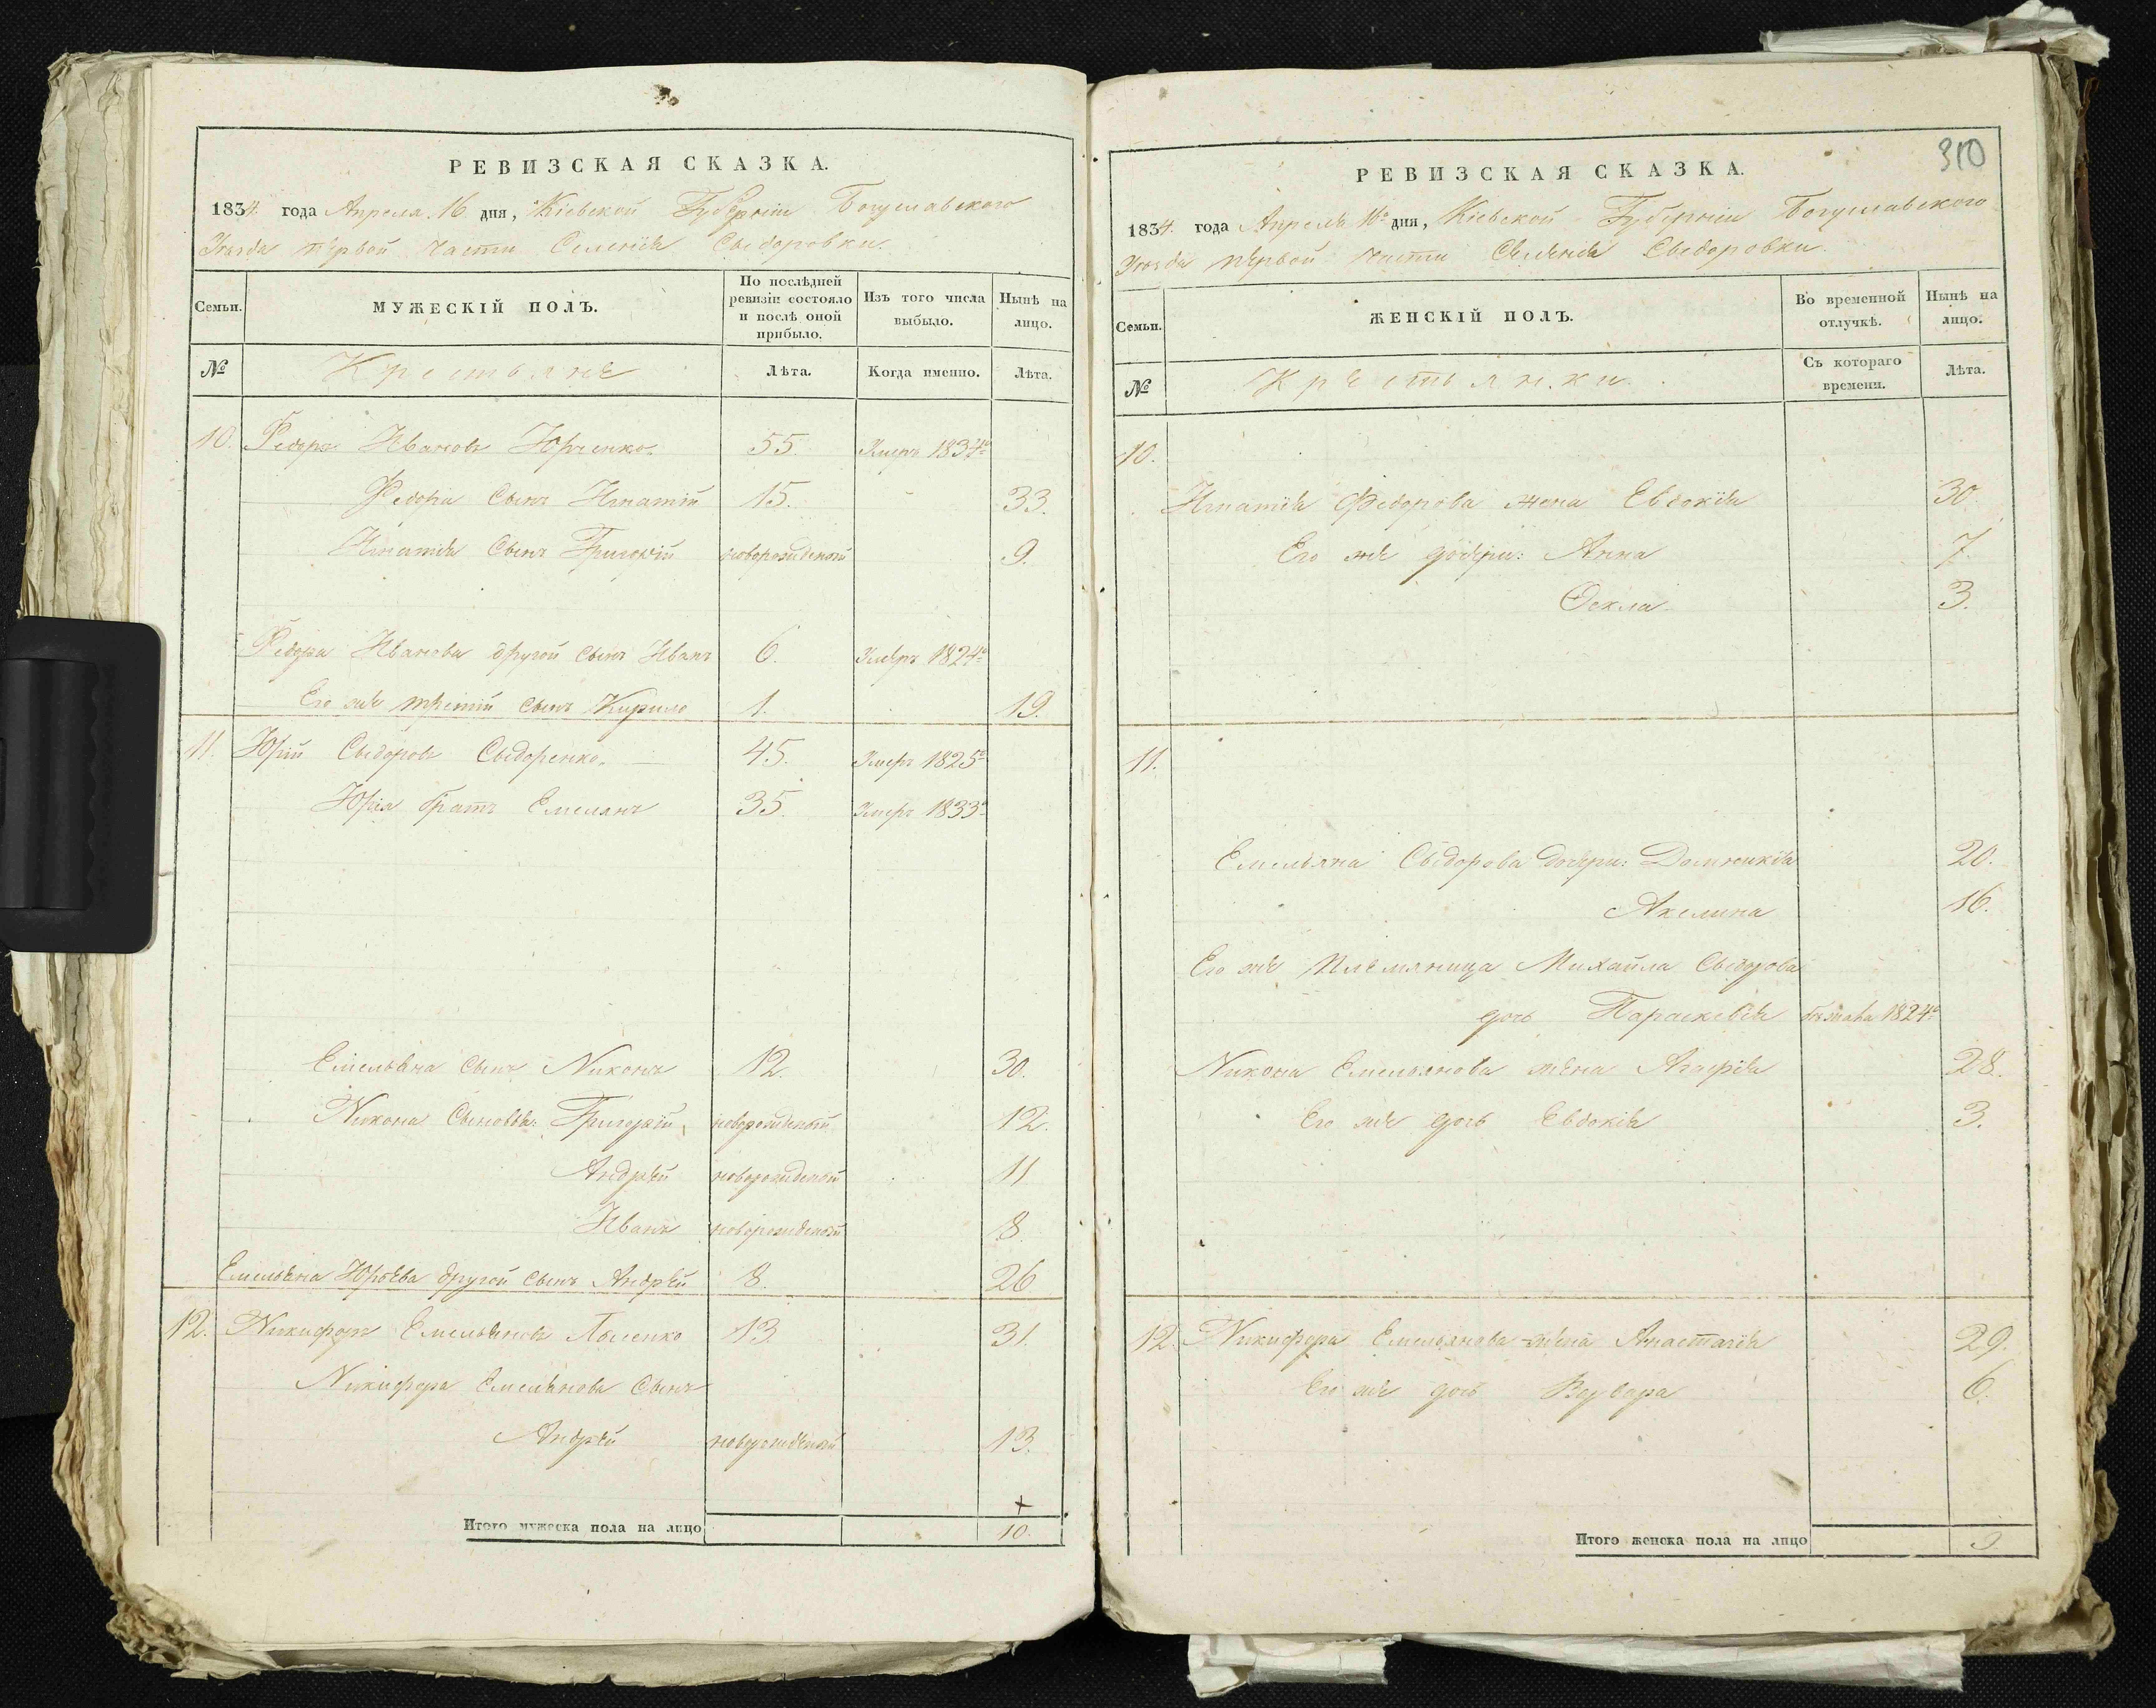 РЕВИЗСКАЯ СКАЗКА.
1834. года Апреля 16 дня, Кіевской Губерніи Богуславского
Уезда первой части Селенія Сыдоровки.
Семьи. МУЖЕСКІЙ ПОЛЪ. По послѣдней ревизіи состояло и послѣ оной прибыло. Изъ того числа выбыло. Нынѣ на лицо.
№ Крестьяне Лѣта. Когда именно. Лѣта.
10. Федоръ Ивановъ Юрченко. 55. Умеръ 1834го
Федора Сынъ Игнатій 15. 33.
Игнатія Сынъ Григорій новорожденный 9.
Федора Иванова другой сынъ Иванъ 6. Умеръ 1824го
Его же третій сынъ Кирило 1. 19.
11. Юрій Сыдоровъ Сыдоренко. 45. Умеръ 1825го
Юрія братъ Емелянъ 35. Умеръ 1833го
Емельяна сынъ Никонъ 12. 30.
Никона Сыновья: Григорій, новорожденный 12.
Андрей новорожденной 11
Иванъ новорожденный 8.
Емельяна Юрьева другой сынъ Андрей 8. 26
12. Никифоръ Емельяновъ 13 31.
Никифора Емелянова Сынъ
Андрей новорожденный 13.
+
Итого мужеска пола на лицо 10.
310
РЕВИЗСКАЯ СКАЗКА.
1834. года Апреля 16го дня, Кіевской Губерніи Богуславского
Уезда первой части Селенія Сыдоровки.
Семьи. ЖЕНСКІЙ ПОЛЪ. Во временной отлучкѣ. Нынѣ на лицо.
№ Крестьянки. Съ котораго времени. Лѣта.
10.
Игнатія Федорова жена Евдокія 30.
Его же дочери: Анна 7.
Ѳекла 3.
11.
Емельяна Сыдорова дочери: Домникія 20.
Акелина 16.
Его же племяница Михайла Сыдорова
дочь Параскевія 1824го
Никона Емельянова жена Агафія 28.
Его же дочь Евдокія 3.
12. Никифора Емельянова жена Анастасія 29.
Его же дочь Варвара 6.
Итого женска пола на лицо 9